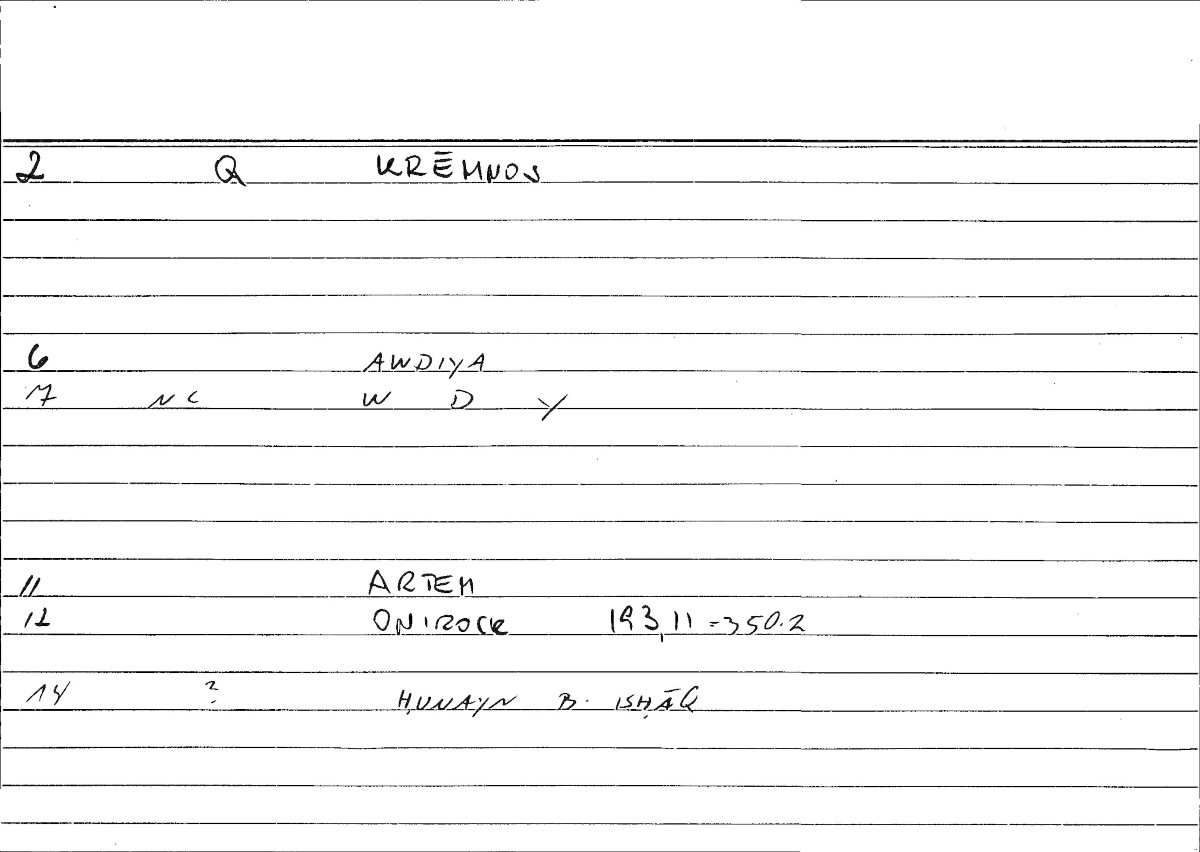 2 Q KRĒMNOS
6 AWDIYA
7 NC W D Y
11 ARTEM
12 ONIROCR 193,11 = 350.2
14 ? ḤUNAYN B. ISḤĀQ